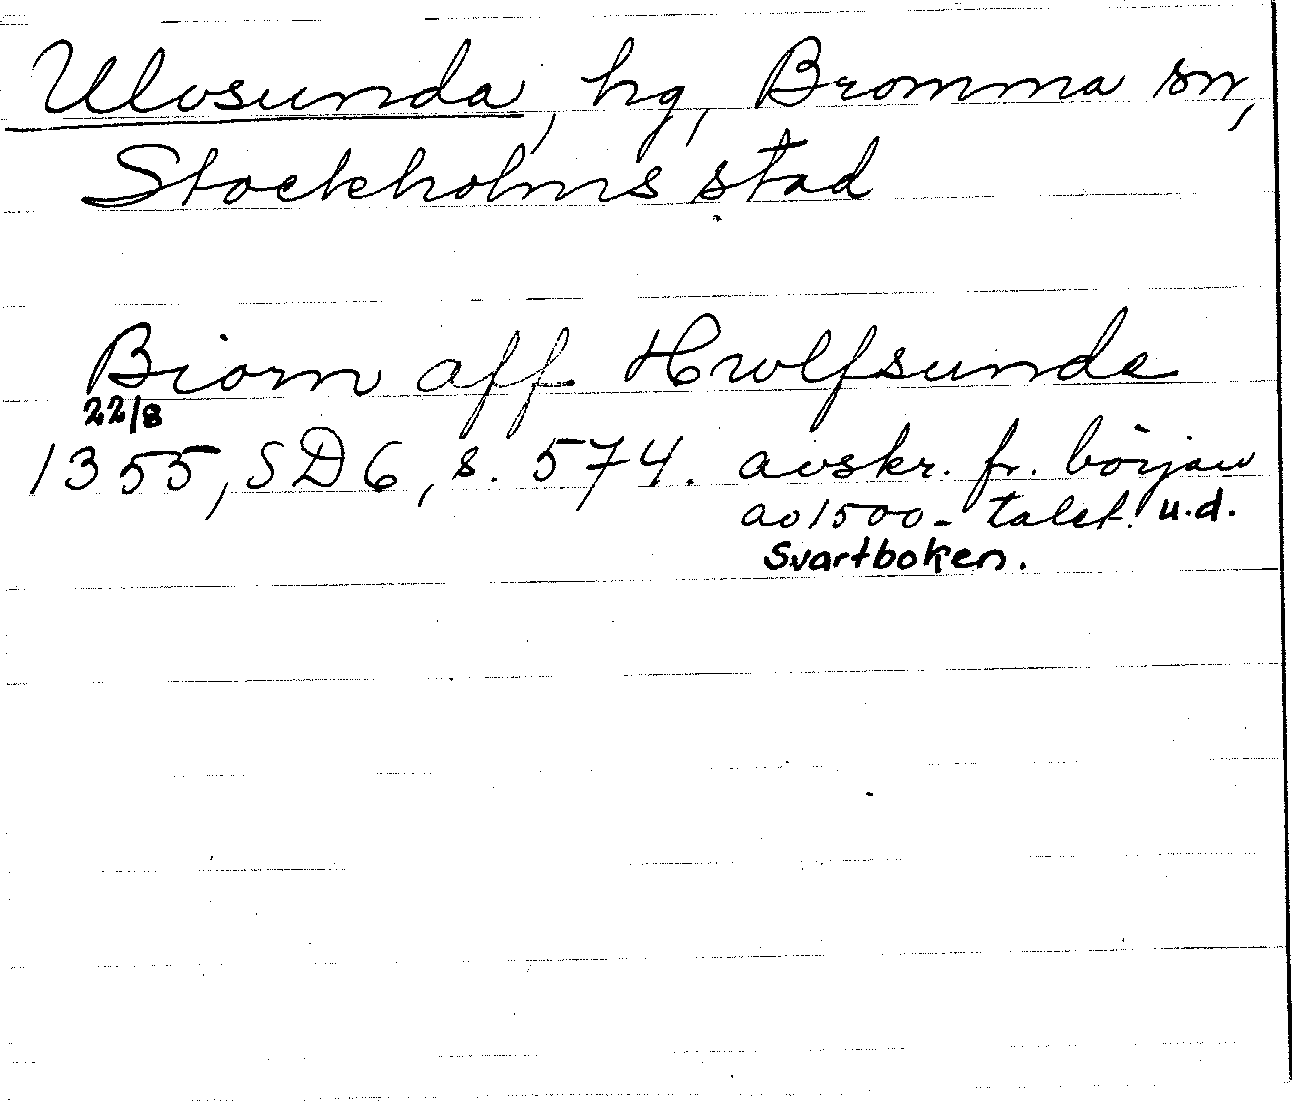 Ulvsunda, hg, Bromma sn,
Stockholms stad
Biorn aff Hwlfsunda
22/8
1355, SD6, s. 574. avskr. fr. början
av 1500-talet. u.d.
Svartboken.